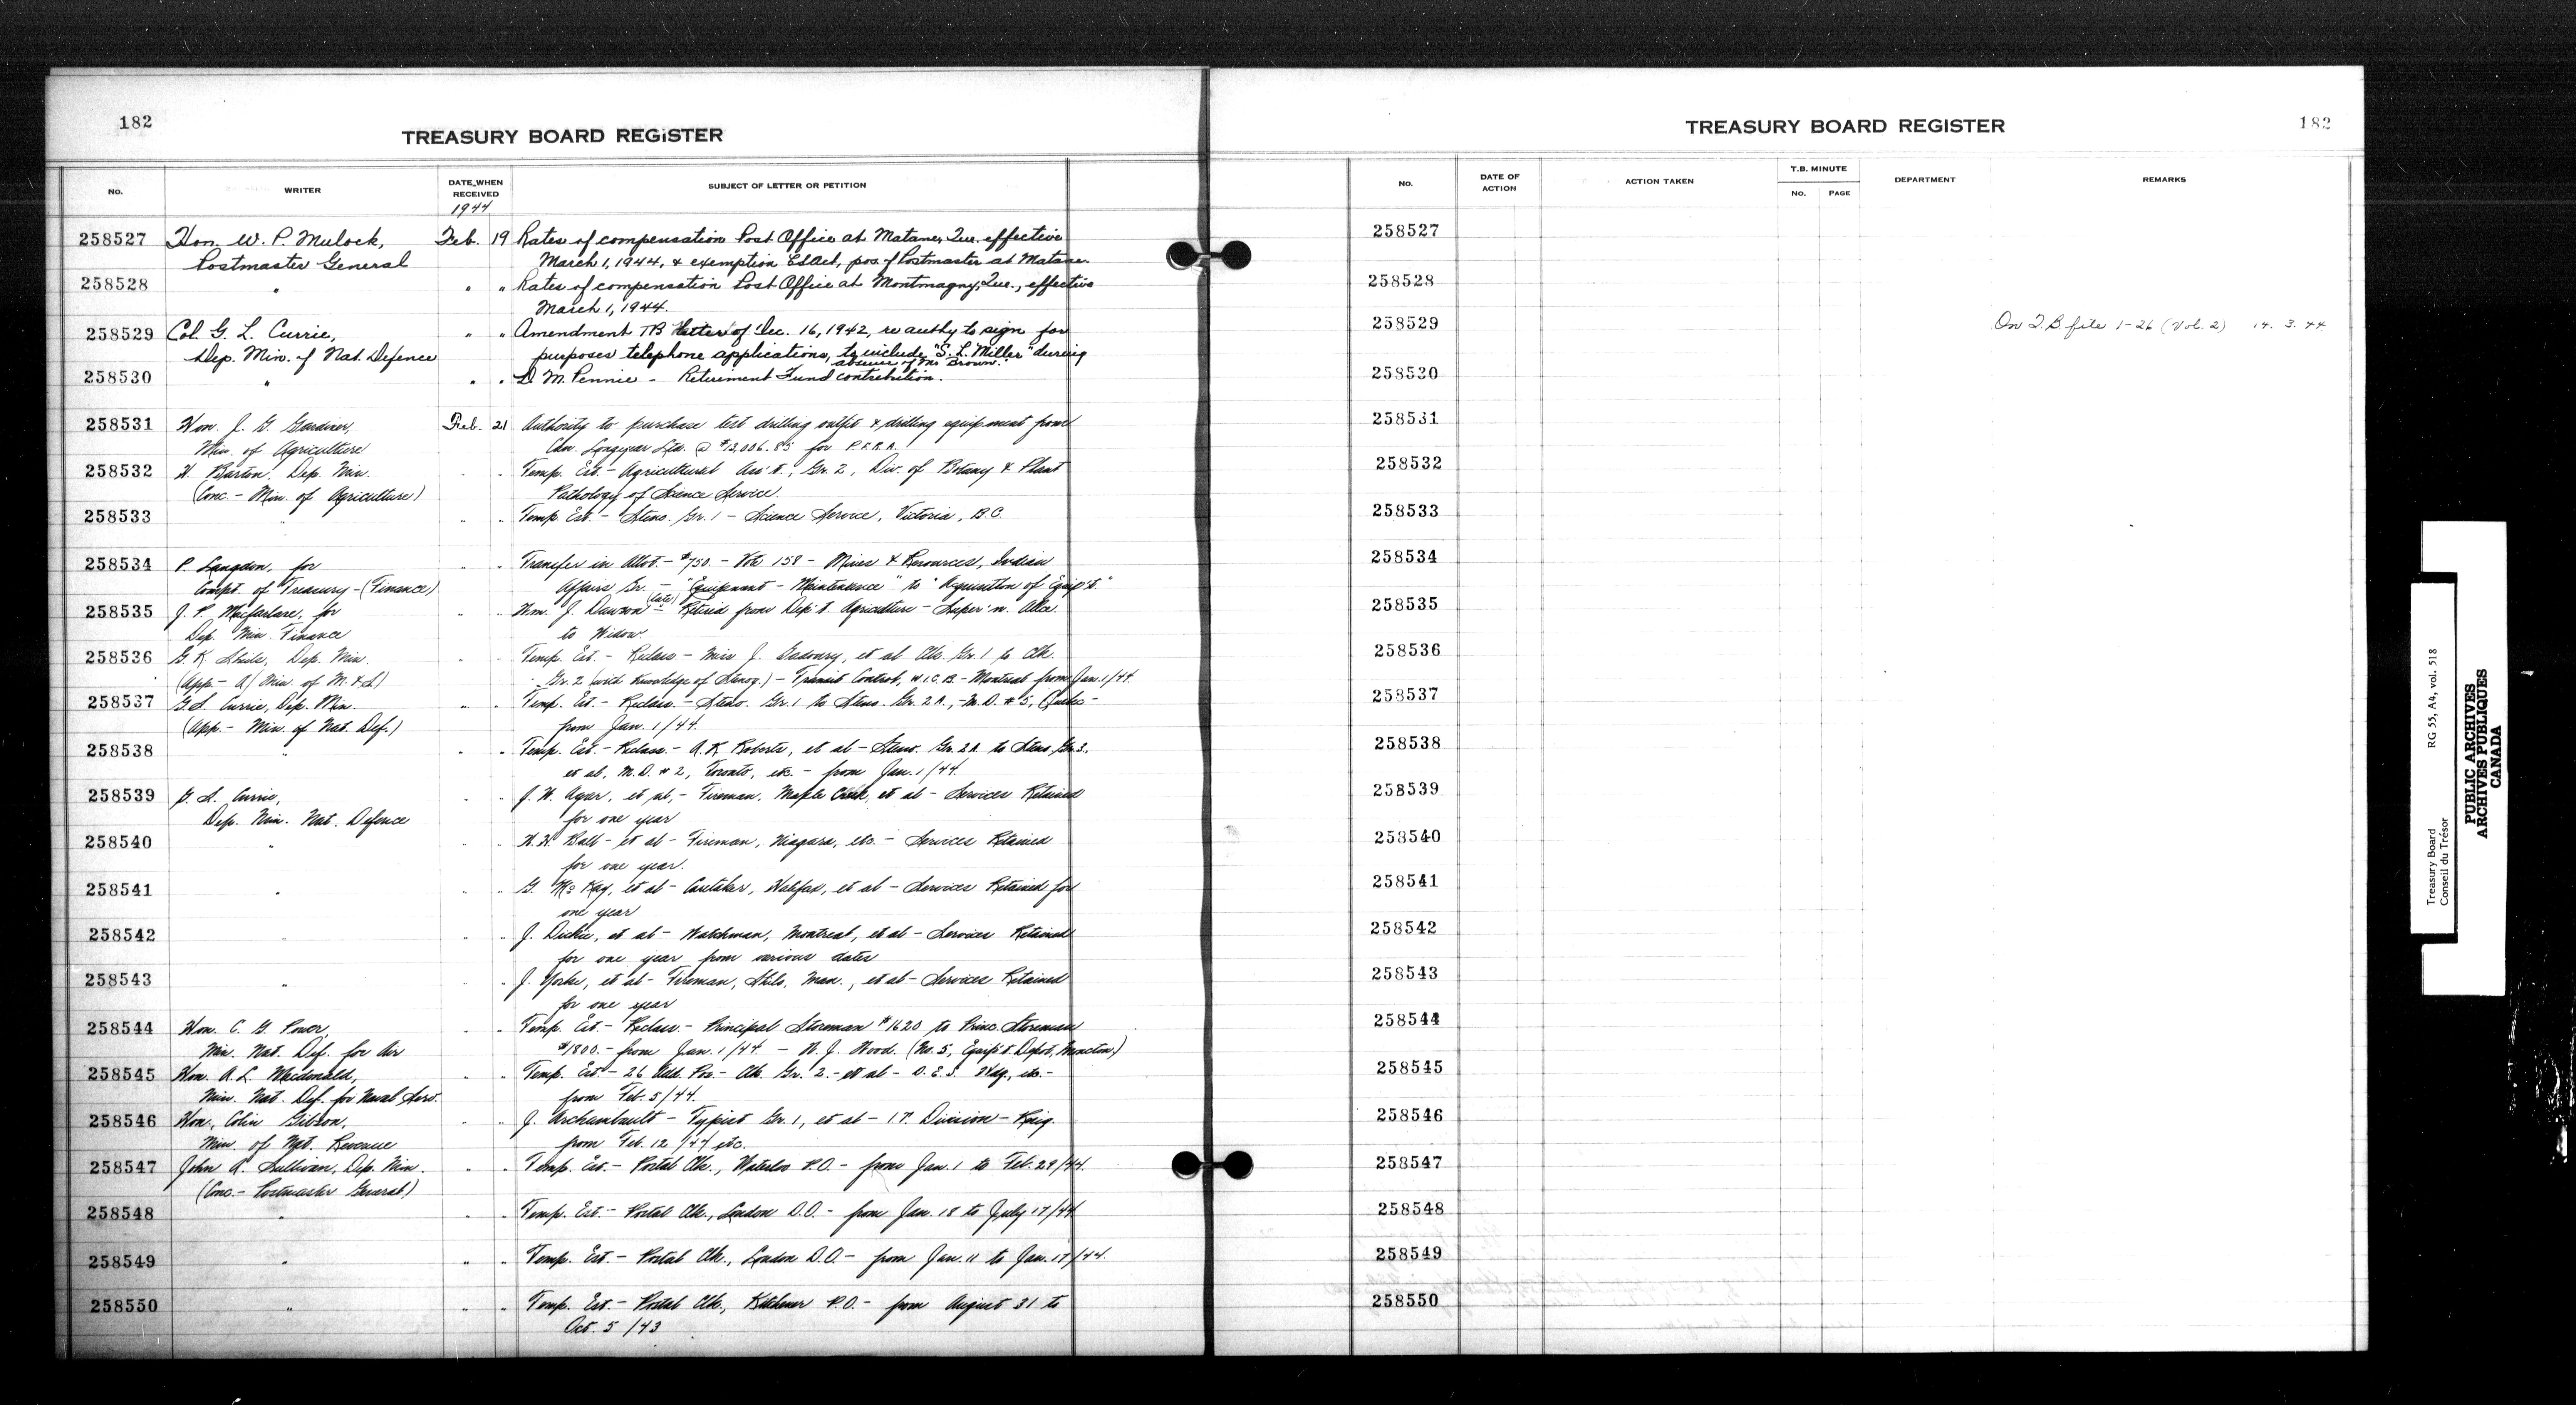 182
TREASURY BOARD REGISTER
No. WRITER DATE WHEN RECEIVED SUBJECT OF LETTER OR PETITION
1944
258527 Hon. W. P. Mulock, Feb. 19 Rates of compensation Post Office at Matane, Que. effective
Postmaster General March 1, 1944, & exemption , pos. of Postmaster at Matane.
258528 " " " Rates of compensation Post Office at Montmagny, Que., effective
March 1, 1944.
258529 Col. G. L. Currie, " " Amendment TB letter of Dec. 16, 1942, re authy to sign for
Dep. Min. of Nat. Defence purposes telephone applications, to include "S. L. Miller" during
absence of Mr Brown.
258530 " " " D. M. Pennie - Retirement Fund contribution.
258531 Hon. J. G. Gardiner, Feb. 21 Authority to purchase test drilling outfit & drilling equipment from
Min. of Agriculture Can. Longyear Ltd. @ $13,006.85 for P.F.R.A.
258532 H. Barton, Dep. Min. " " Temp. Est. - Agricultural Ass't., Gr. 2, Div. of Botany & Plant
(Conc. - Min. of Agriculture) Pathology of Science Service.
258533 " " " Temp. Est. - Steno. Gr. 1 - Science Service, Victoria, B.C.
258534 P. Langdon, for " " Transfer in Allot. - $750. - Vote 158 - Mines & Resources, Indian
Compt. of Treasury - (Finance) Affairs Br. - "Equipment - Maintenance" to "Acquisition of Equip't."
258535 J. P. Macfarlane, for " " Wm. J. Dawson (late) - Retired from Dep't. Agriculture - Super'n. Allce.
Dep. Min. Finance to Widow
258536 G. K. Sheils, Dep. Min. " " Temp. Est. - Reclass. - Miss J. , et al Clk. Gr. 1 to Clk.
(App. - A/ Min. of M. & S.) Gr. 2 (with knowledge of Stenog.) - Transit Control, W.I.C.B. - Montreal from Jan. 1/44.
258537 G. S. Currie, Dep. Min. " " Temp. Est. - Reclass. - Steno. Gr. 1 to Steno. Gr. 2A, - M.D. # 5, Quebec -
(App. - Min. of Nat. Def.) from Jan. 1/44.
258538 " " " Temp. Est. - Reclass. - A. K. Roberts, et al - Steno. Gr. 2A to Steno. Gr. 3,
et al, M.D. # 2, Toronto, etc. - from Jan. 1/44.
258539 G. S. Currie, " " J. W. Agar, et al, - Fireman, Maple Creek, et al - Services Retained
Dep. Min. Nat. Defence for one year
258540 " " " H. H. Ball - et al - Fireman, Niagara, etc. - Services Retained
for one year.
258541 " " " G. McKay, et al - Caretaker, Halifax, et al - Services Retained for
one year
258542 " " " J. Dickie, et al - Watchman, Montreal, et al - Services Retained
for one year from various dates
258543 " " " J. Yorke, et al - Fireman, Shilo, Man., et al - Services Retained
for one year
258544 Hon. C. G. Power, " " Temp. Est. - Reclass. - Principal Storeman $1620 to Princ. Storeman
Min. Nat. Def. for Air $1800. - from Jan. 1/44 - H. J. Wood. (No. 5, Equip't. Depot, Moncton)
258545 Hon. A. L. Macdonald, " " Temp. Est. - 26 Add. Pos. - Clk. Gr. 2. - et al - D.E.S. Hdq., etc. -
Min. Nat. Def. for Naval Serv. from Feb. 5/44.
258546 Hon. Colin Gibson, " " J. Archambault - Typist Gr. 1, et al - I.T. Division - Resig.
Min. of Nat. Revenue from Feb. 12/44 etc.
258547 John A. Sullivan, Dep. Min. " " Temp. Est. - Postal Clk., Waterloo P.O. - from Jan. 1 to Feb. 29/44.
(Conc. - Postmaster General)
258548 " " " Temp. Est. - Postal Clk., London D.O. - from Jan. 18 to July 17/44
258549 " " " Temp. Est. - Postal Clk., London D.O. - from Jan. 11 to Jan. 17/44.
258550 " " " Temp. Est. - Postal Clk., Kitchener P.O. - from August 31 to
Oct. 5/43
TREASURY BOARD REGISTER
182
No. DATE OF ACTION ACTION TAKEN T.B. MINUTE No. PAGE DEPARTMENT REMARKS
258527
258528
258529 On T.B. file 1-26 (Vol. 2) 14. 3. 44
258530
258531
258532
258533
258534
258535
258536
258537
258538
258539
258540
258541
258542
258543
258544
258545
258546
258547
258548
258549
258550
Treasury Board RG 55, A4, vol. 518
Conseil du Trésor
PUBLIC ARCHIVES
ARCHIVES PUBLIQUES
CANADA